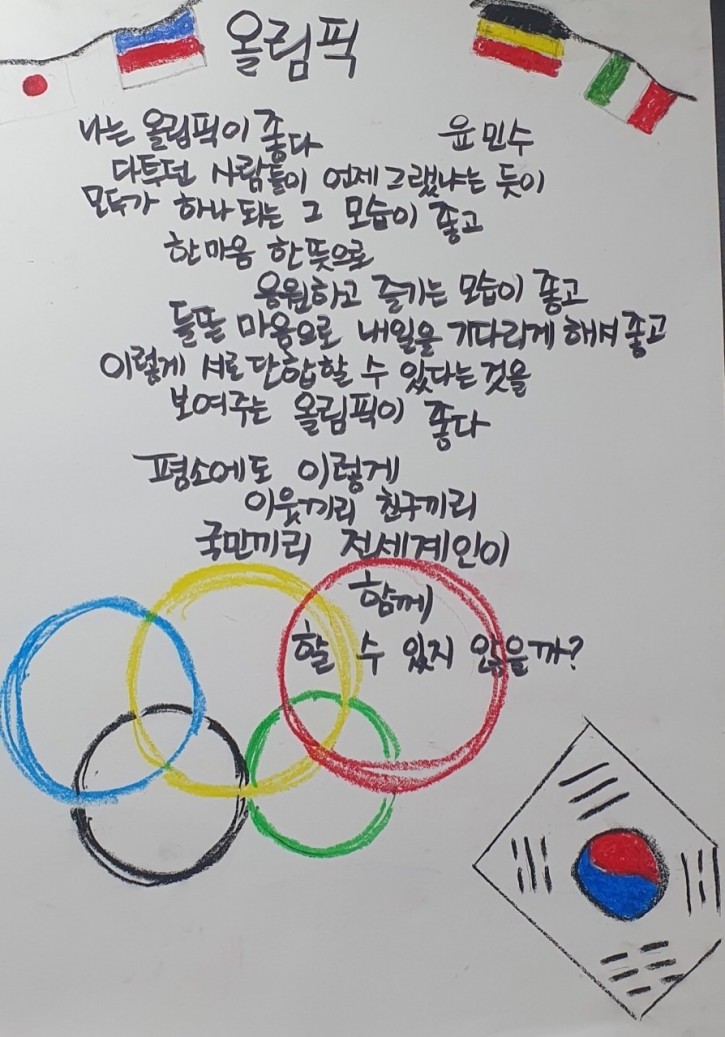 올림픽
나는 올림픽이 좋다
윤민수
다투던 사람들이 언제그랬냐는 듯이
모두가 하나 되는 그 모습이 좋고
한마음 한뜻으로
응원하고 즐기는 모습이 좋고
들뜬 마음으로 내일을 기다리게 해서 좋고
이렇게 서로 단합할 수 있다는것을
보여주는 올림픽이 좋다
평소에도 이렇게
이웃끼리 친구끼리
국민끼리 전세계인이
함께
할 수 있지 않을까?